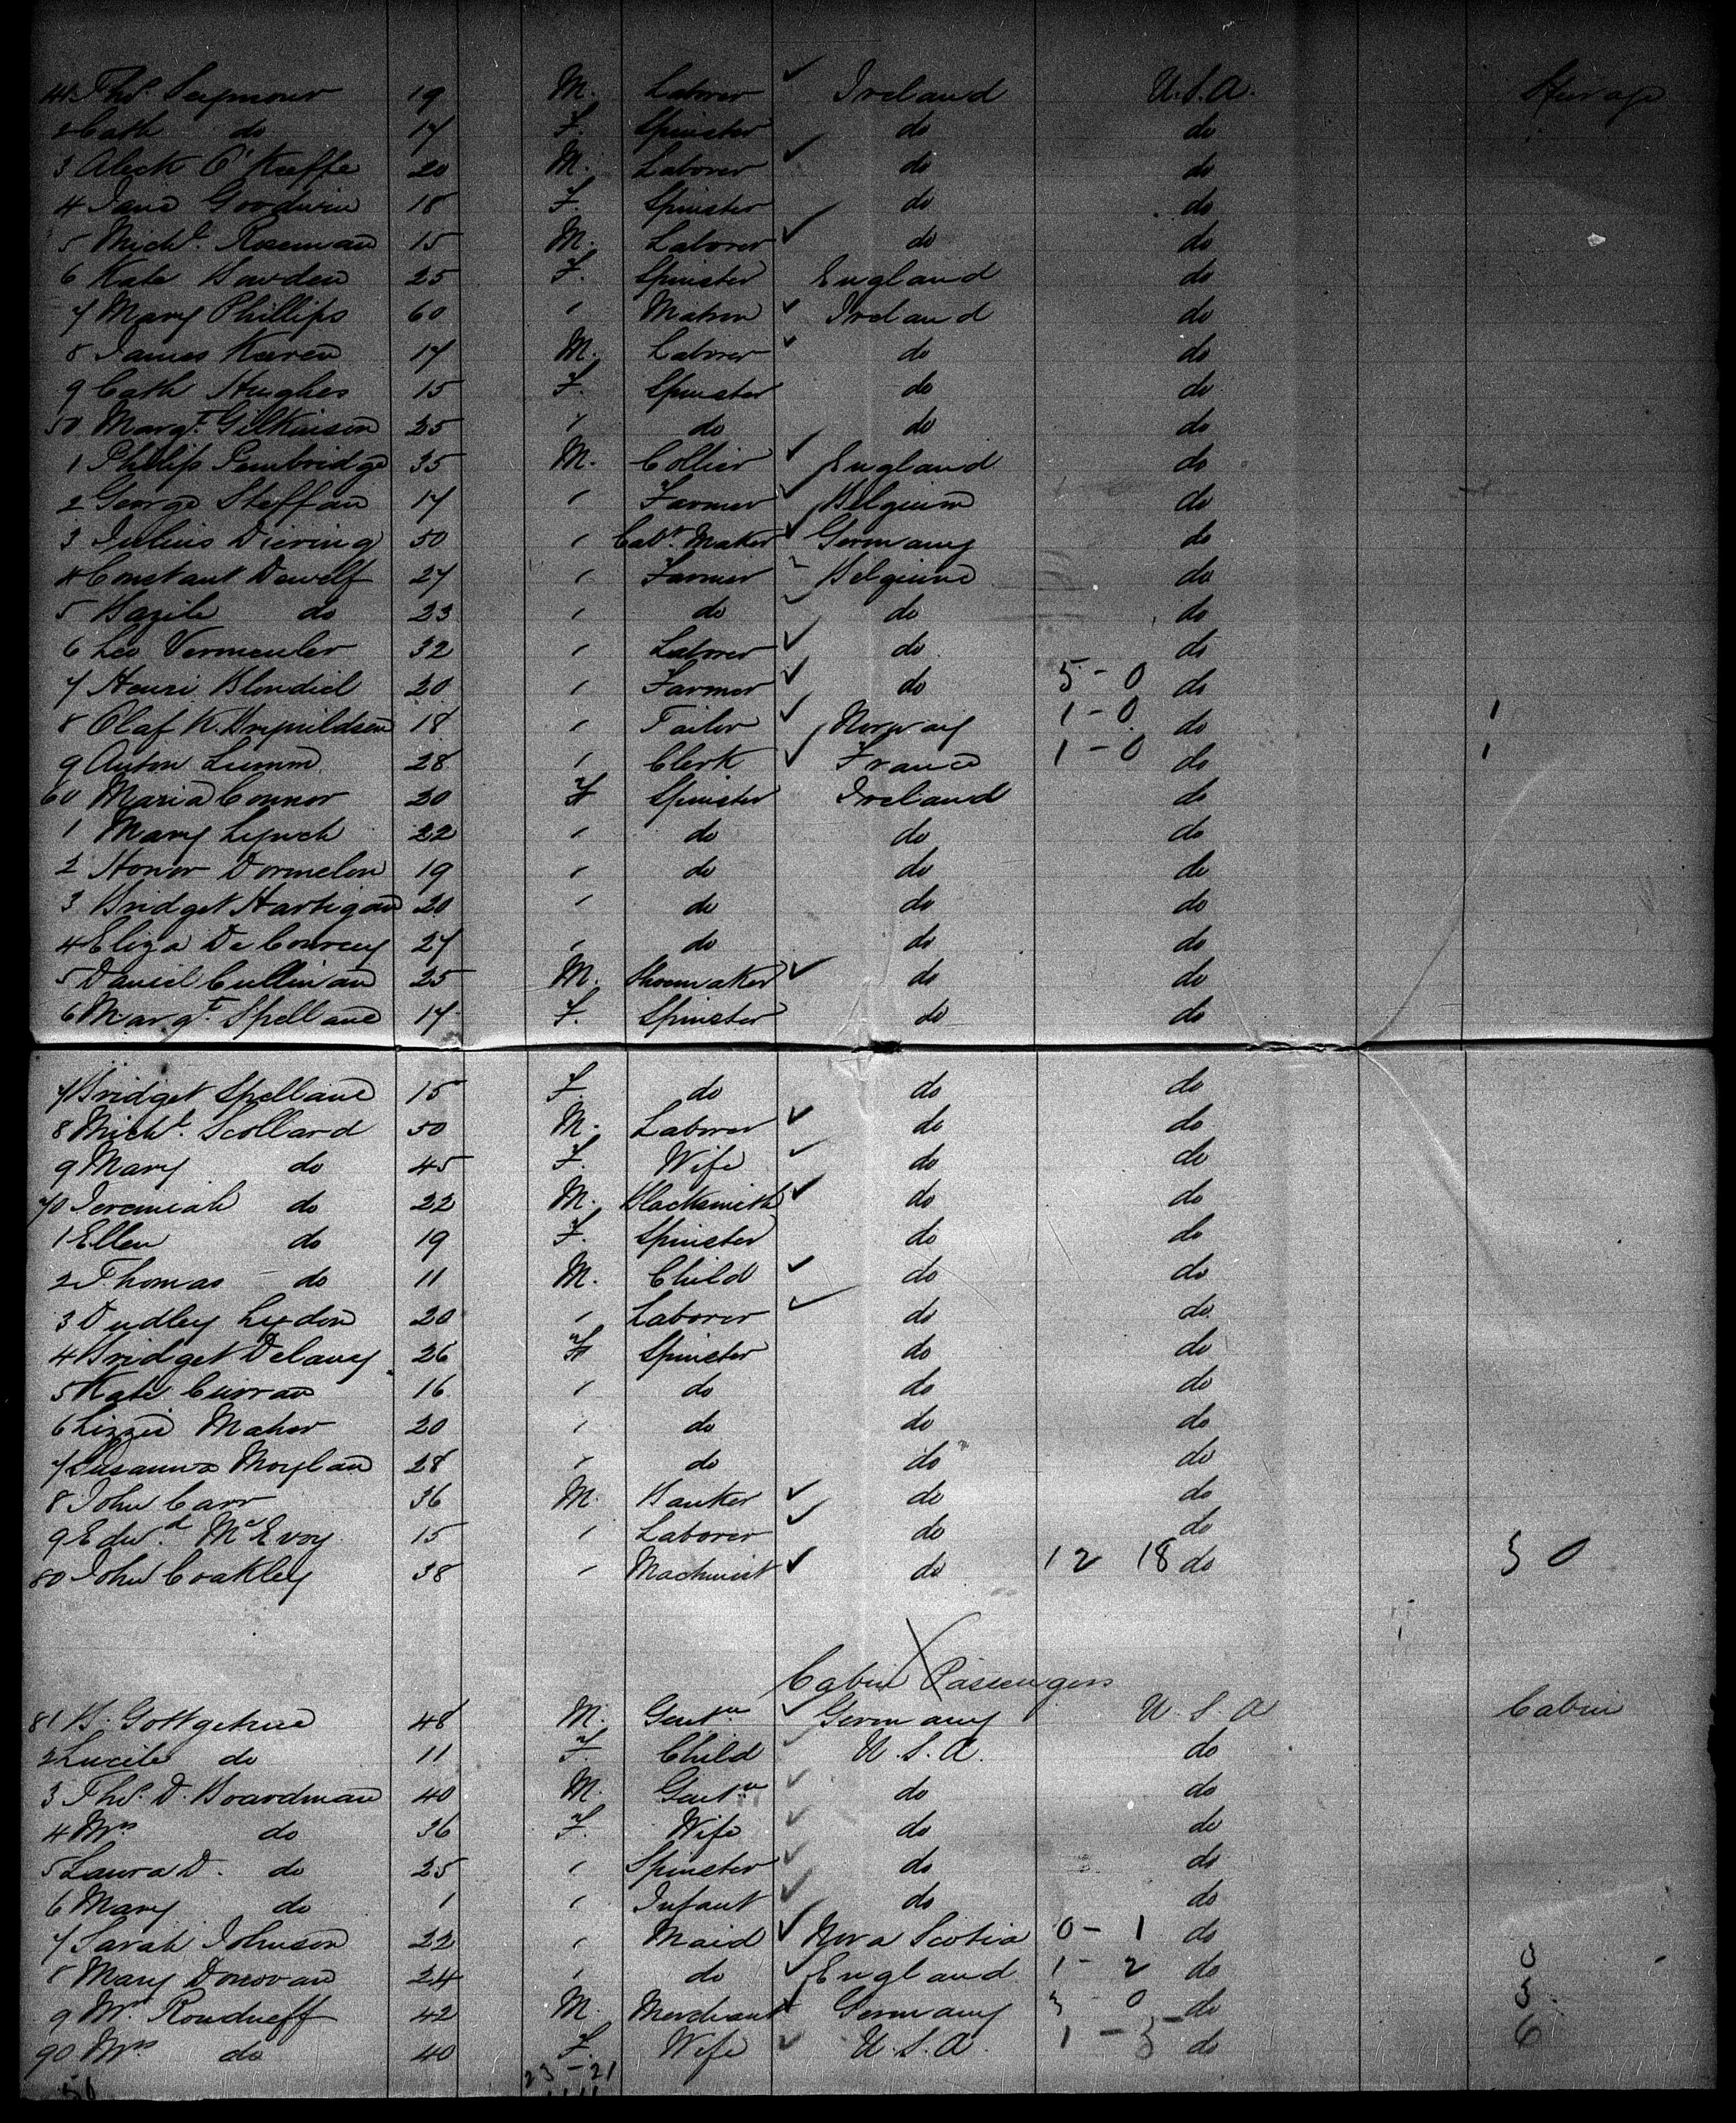 41 Thos. Seymour 19 M. Laborer ✓ Ireland U.S.A. Steerage
2 Cath do 17 F. Spinster do do
3 Aleck O'Keeffe 20 M. Laborer ✓ do do
4 Jane Goodwin 18 F. Spinster do do
5 Michl. Roseman 15 M. Laborer ✓ do do
6 Kate Bowden 25 F. Spinster England do
7 Mary Phillips 60 " Matron ✓ Ireland do
8 James Keren 17 M. Laborer ✓ do do
9 Cath Hughes 15 F. Spinster do do
50 Margt. Gilkinson 25 " do do do
1 Philip Pembridge 35 M. Collier ✓ England do
2 George Steffan 17 " Farmer ✓ Belgium do
3 Julius Diering 50 " Cabt. Maker ✓ Germany do
4 Constant Dewolf 27 " Farmer Belgium do
5 Bazile do 23 " do do do
6 Leo Vermeuler 32 " Laborer ✓ do do
7 Henri Blondiel 20 " Farmer ✓ do 5-0 do
8 Olaf K. 18 " Tailor ✓ Norway 1-0 do 1
9 Anton Lumm 28 " Clerk ✓ France 1-0 do 1
60 Maria Connor 20 F Spinster Ireland do
1 Mary Lynch 22 " do do do
2 Honor 19 " do do do
3 Bridget Hartigan 20 " do do do
4 Eliza De Courcy 27 " do do do
5 Daniel Cullinan 25 M. Shoemaker ✓ do do
6 Margt. Spellane 17 F. Spinster do do
7 Bridget Spellane 15 F. do do do
8 Michl. Scollard 50 M. Laborer ✓ do do
9 Mary do 45 F. Wife ✓ do do
70 Jeremiah do 22 M. Blacksmith ✓ do do
1 Ellen do 19 F. Spinster do do
2 Thomas do 11 M. Child ✓ do do
3 Dudley Lydon 20 " Laborer ✓ do do
4 Bridget Delany 26 F Spinster do do
5 Kate Curran 16 " do do do
6 Lizzie Maher 20 " do do do
7 Susanna Moylan 28 " do do do
8 John Carr 36 M. Banker ✓ do do
9 Edwd. McEvoy 15 " Laborer ✓ do do
80 John Coakley 38 " Machinist ✓ do 12 18 do 30
Cabin Passengers
81 B. 48 M. Gentn ✓ Germany U.S.A Cabin
2 Lucile do 11 F. Child ✓ U.S.A. do
3 Thos. D. Boardman 40 M. Gentn ✓ do do
4 Mrs do 36 F. Wife ✓ do do
5 Laura D. do 25 " Spinster ✓ do do
6 Mary do 1 " Infant ✓ do do
7 Sarah Johnson 22 " Maid ✓ Nova Scotia 0-1 do
8 Mary Donovan 24 " do ✓ England 1-2 do 0
9 Mr. Roudneff 42 M. Merchant Germany 3 0 do 3
90 Mrs do 40 F. Wife ✓ U.S.A. 1-5 do 6
23-21